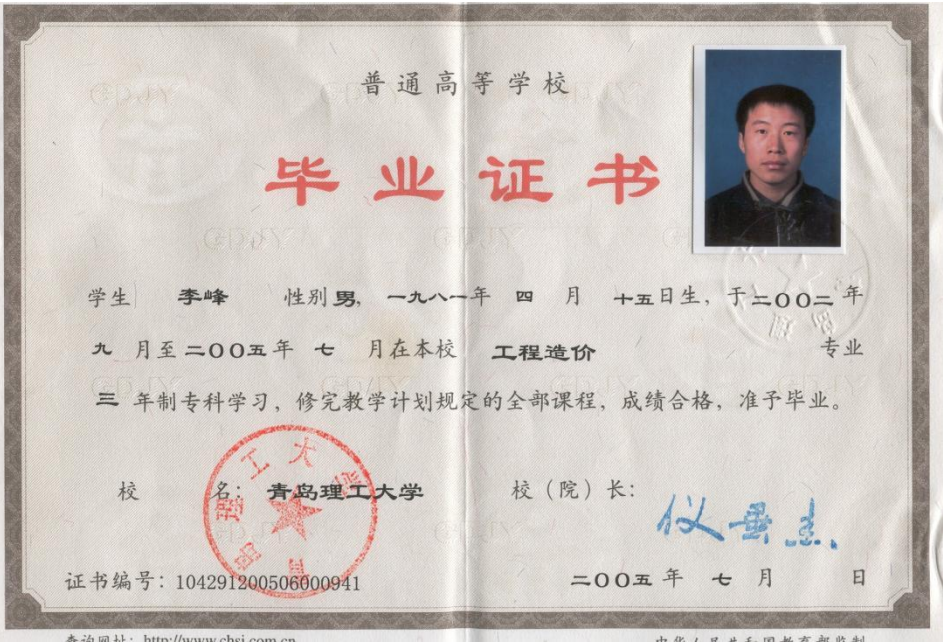 普通高等学校
毕业证书
学生 李峰 性别 男, 一九八一年 四 月 十五日生, 于二〇〇二年
九 月至二〇〇五年 七 月在本校 工程造价 专业
三 年制专科学习, 修完教学计划规定的全部课程, 成绩合格, 准予毕业。
校 名: 青岛理工大学 校(院)长: 仪垂杰
青岛理工大学
证书编号: 104291200506000941 二〇〇五 年 七 月 日
查询网址: http://www.chsi.com.cn 中华人民共和国教育部监制